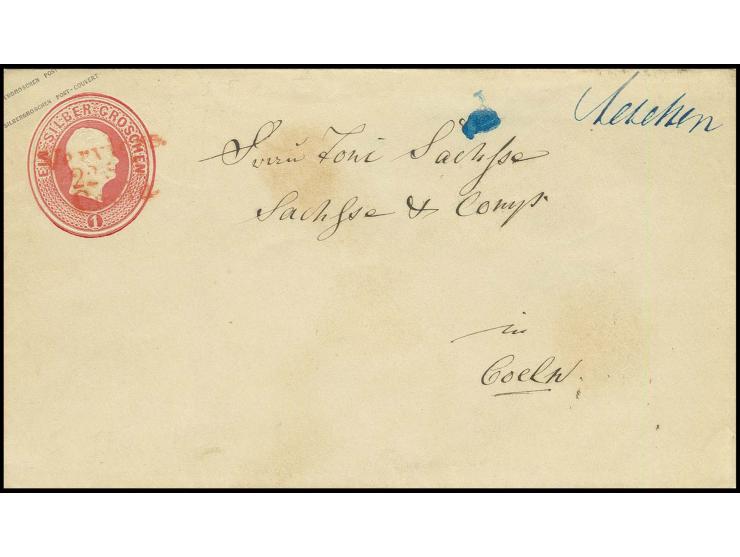 SILBERGROSCHEN POST-COUVERT
EIN SILBER GROSCHEN
1
22
Herrn Toni Sachsse
Sachsse & Comp.
in
Coeln.